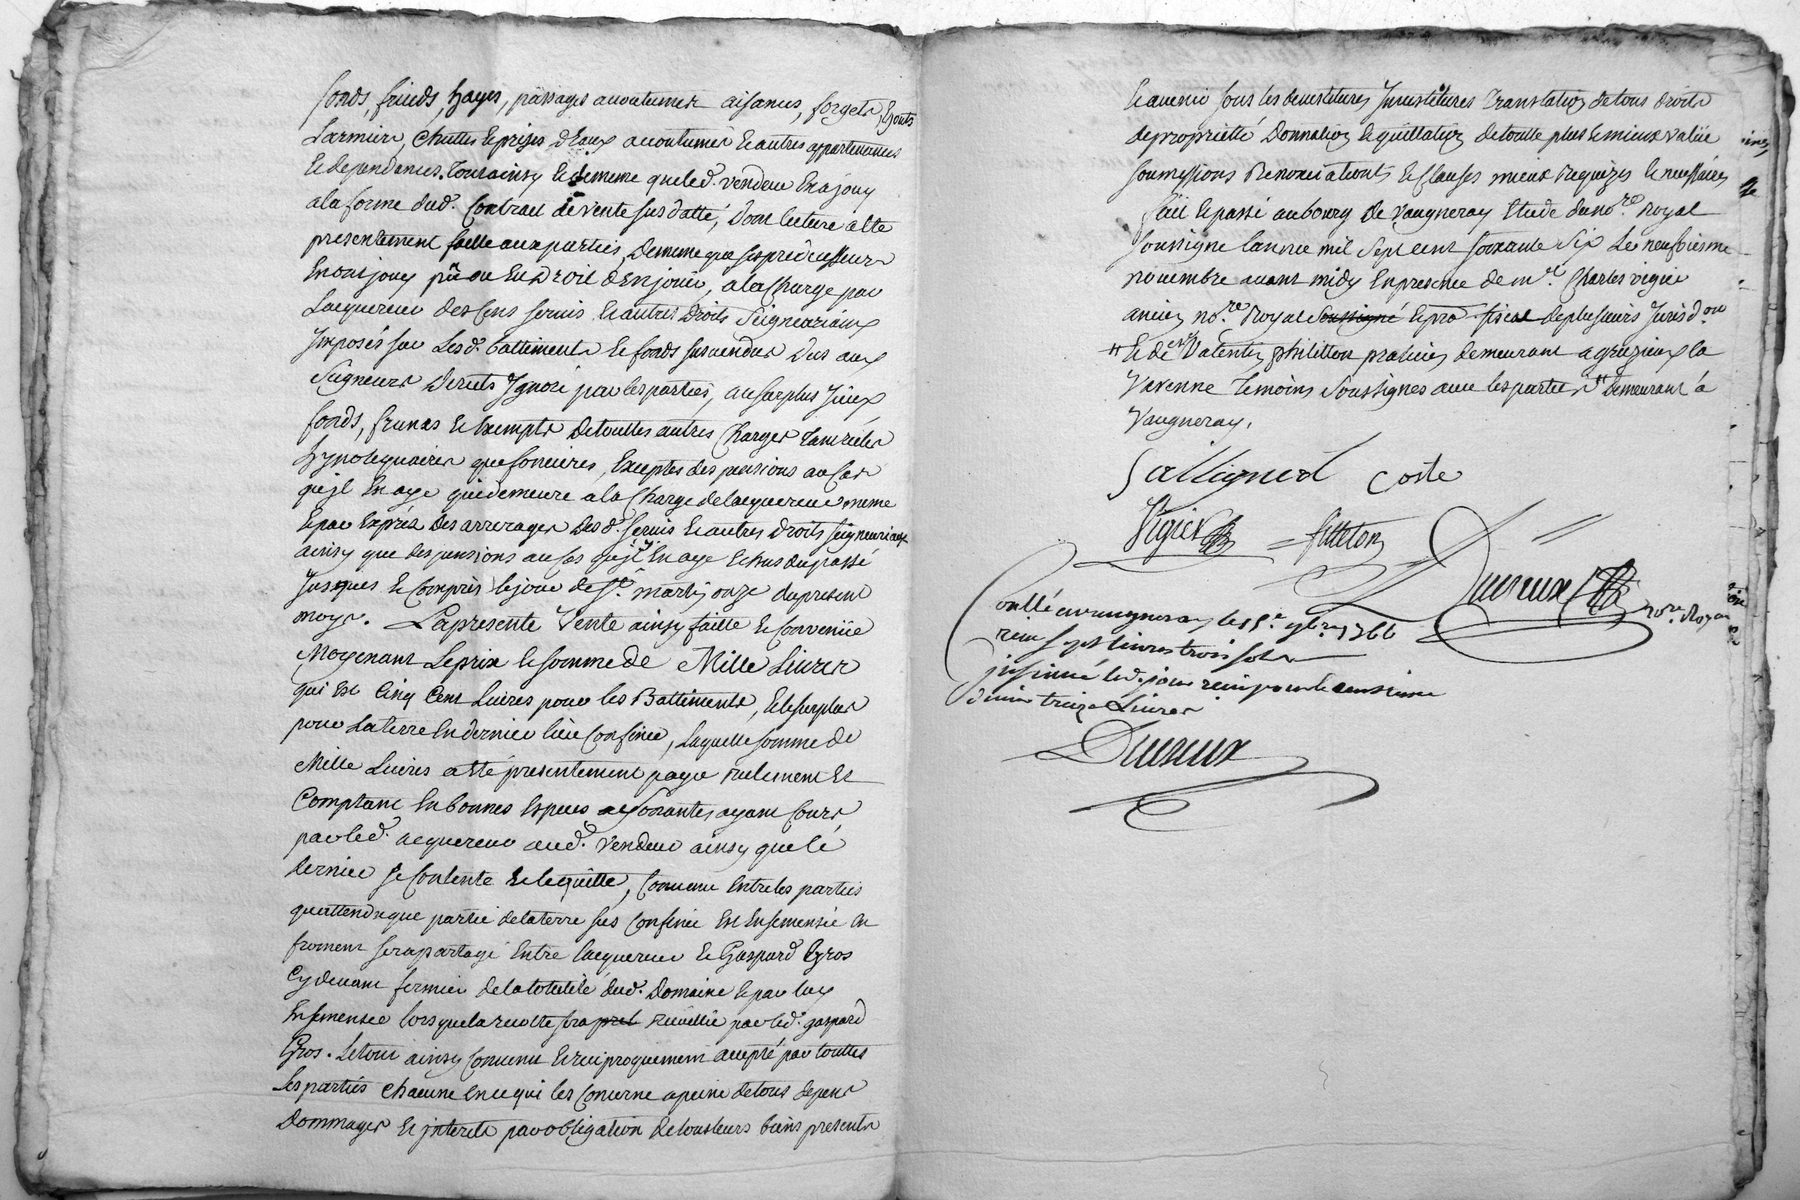 fonds, frieds, hayes, passages accoutumés aisances, forgets, Egouts
Larmiers, Chuttes Et prises d'Eaux accoutumés Et autres appartenances
Et dependances, Tout ainsy Et de meme que led. vendeur En a jouy
a la forme dud. Contrat de vente susdatté, dont lecture a ete
presentement faitte aux parties, de meme que ses predecesseurs
En ont jouy pû ou Eu Droit d'En jouir, a la Charge par
Lacquereur des Cens servis Et autres Droits Seigneuriaux
Imposés sur Lesd. battiments Et fonds sus vendus dus aux
Seigneurs Directs Ignoré par les parties, au surplus Iceux
fonds, francs Et Exempts de touttes autres Charges tant reelles
hypotequaires que foncieres, Exceptés des pensions au Cas
qu'jl En aye qui demeure a la Charge de lacquereur meme
Et par Exprès Des arrerages Des d. servis Et autres Droits seigneuriaux
ainsy que des pensions au Cas qu'jl y En aye Echus du passé
Jusques Et Compris le jour de St. martin onze du present
moys. La presente Vente ainsy faitte Et Convenüe
Moyenant Le prix Et somme de Mille Livres
qui Est Cinq Cent Livres pour les Battiments, Et le surplus
pour La terre En dernier lieu Confinée, Laquelle somme de
Mille Livres a été presentement payée reelement Et
Comptant En bonnes Especes et sonantes ayant Cours
par led. acquereur aud. Vendeur ainsy que le
dernier se Contente Et le quitte, Convenu Entre les parties
qu'attendu que partie de la terre sus Confinée Est Ensemensée En
froment sera partagé Entre lacquereur Et Gaspard Gros
Cydevant fermier de la totalité dud. Domaine Et par luy
Ensemensée lorsque la recolte sera pret recueillie par led. gaspard
Gros. Le tout ainsy Convenu Et reciproquement accepté par touttes
Les parties Chacune En ce qui les Concerne a peine de tous depens
Dommages Et jnterets par obligation de tous leurs biens presents
Et avenir sous les devestitures Investitures translation de tous droits
de proprieté Donnation Et quittation de toutte plus Et mieux valüe
soumissions Renonciations Et Clauses mieux requizes Et necessaires
fait Et passé au bourg de Vaugneray Etude du no.re royal
soussigné lannée mil sept cent soixante six Le neufvieme
novembre avant midy En presence de m.re Charles vigier
ancien no.re Royal soussigné Et pro. fiscal de plusieurs Jurisd.on
" Et de Valentin philitton praticien demeurant a grézieux la
Varenne temoins soussignes avec les parties " demeurant à
Vaugneray,
Coste
Vigier
fitteton
Ducreux
no.re Royal
Conllé a vaugneray le 15.e 9bre 1766
reçu sept livres trois sols
insinué led. jour reçu pour le centieme
denier treize Livres
Ducreux